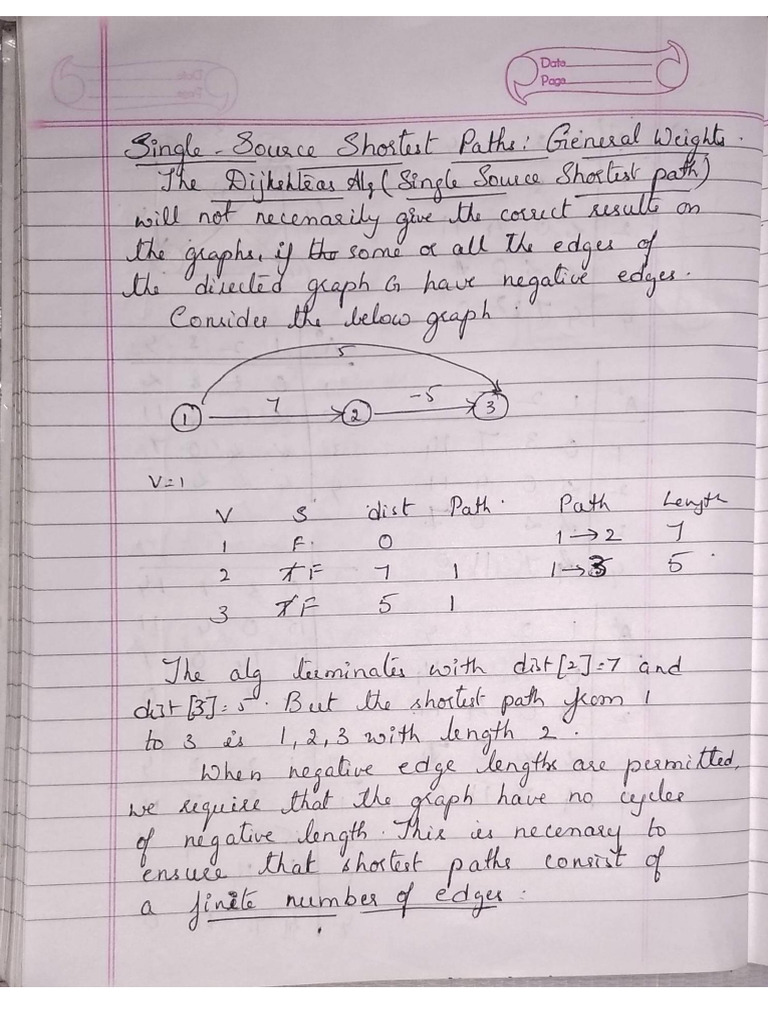 Date
Page
Single-Source Shortest Paths: General Weights.
The Dijkehteas Alg (Single Source Shortest path)
will not necenarily give the correct results on
the graphs, if the some or all the edges of
the directed graph G have negative edges.
Consider the below graph.
5
1 7 2 -5 3
V=1
V S dist Path. Path Length
1 F. 0 1→2 7
2 F 7 1 1→3 5
3 F 5 1
The alg terminates with dist[2]=7 and
dist[3]=5. But the shortest path from 1
to 3 is 1,2,3 with length 2.
When negative edge lengths are permitted,
we require that the graph have no cycles
of negative length. This is necenary to
ensure that shortest paths consist of
a finite number of edges: